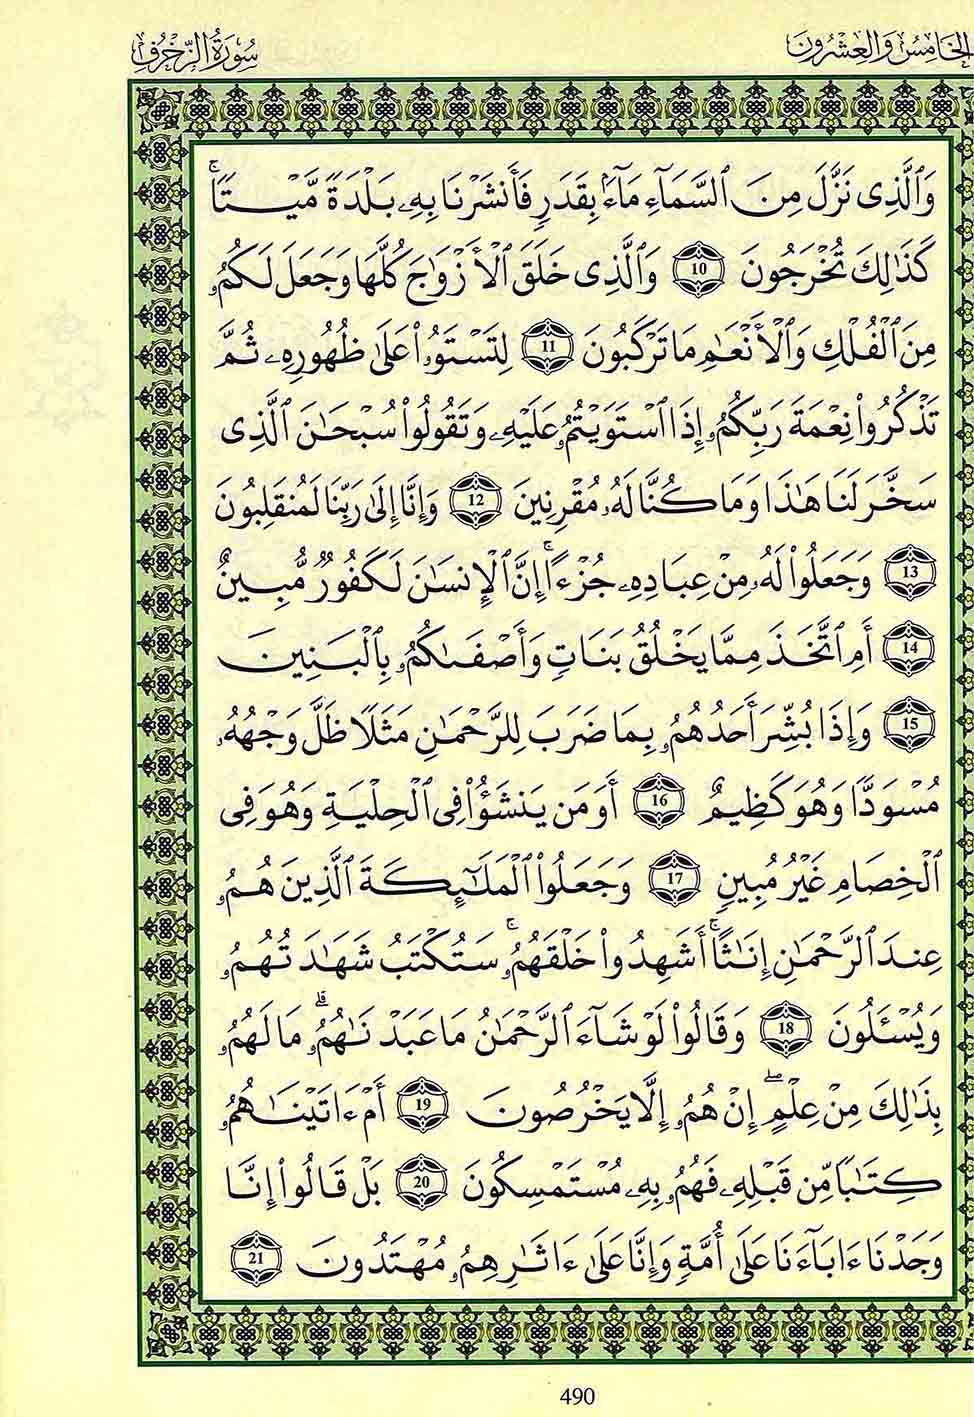 الخامس والعشرون سُورَةُ الزُّخْرُفِ
وَٱلَّذِى نَزَّلَ مِنَ ٱلسَّمَآءِ مَآءَۢ بِقَدَرٍ فَأَنشَرْنَا بِهِۦ بَلْدَةً مَّيْتًاۚ
كَذَٰلِكَ تُخْرَجُونَ 10 وَٱلَّذِى خَلَقَ ٱلْأَزْوَٰجَ كُلَّهَا وَجَعَلَ لَكُمُۥ
مِنَ ٱلْفُلْكِ وَٱلْأَنْعَٰمِ مَا تَرْكَبُونَ 11 لِتَسْتَوُۥا۟ عَلَىٰ ظُهُورِهِۦ ثُمَّ
تَذْكُرُوا۟ نِعْمَةَ رَبِّكُمُۥ إِذَا ٱسْتَوَيْتُمُۥ عَلَيْهِۦ وَتَقُولُوا۟ سُبْحَٰنَ ٱلَّذِى
سَخَّرَ لَنَا هَٰذَا وَمَا كُنَّا لَهُۥ مُقْرِنِينَ 12 وَإِنَّا إِلَىٰ رَبِّنَا لَمُنقَلِبُونَ
13 وَجَعَلُوا۟ لَهُۥ مِنْ عِبَادِهِۦ جُزْءًاۚ إِنَّ ٱلْإِنسَٰنَ لَكَفُورٌ مُّبِينٌ
14 أَمِ ٱتَّخَذَ مِمَّا يَخْلُقُ بَنَاتٍ وَأَصْفَىٰكُمُۥ بِٱلْبَنِينَ
15 وَإِذَا بُشِّرَ أَحَدُهُمُۥ بِمَا ضَرَبَ لِلرَّحْمَٰنِ مَثَلًا ظَلَّ وَجْهُهُۥ
مُسْوَدًّا وَهُوَ كَظِيمٌ 16 أَوَمَن يَنشَؤُا۟ فِى ٱلْحِلْيَةِ وَهُوَ فِى
ٱلْخِصَامِ غَيْرُ مُبِينٍ 17 وَجَعَلُوا۟ ٱلْمَلَٰٓئِكَةَ ٱلَّذِينَ هُمُۥ
عِندَ ٱلرَّحْمَٰنِ إِنَٰثًاۚ أَشَهِدُوا۟ خَلْقَهُمُۥۚ سَتُكْتَبُ شَهَٰدَتُهُمُۥ
وَيُسْـَٔلُونَ 18 وَقَالُوا۟ لَوْ شَآءَ ٱلرَّحْمَٰنُ مَا عَبَدْنَٰهُمُۥۗ مَا لَهُمُۥ
بِذَٰلِكَ مِنْ عِلْمٍۖ إِنْ هُمُۥ إِلَّا يَخْرُصُونَ 19 أَمْ ءَاتَيْنَٰهُمُۥ
كِتَٰبًا مِّن قَبْلِهِۦ فَهُمُۥ بِهِۦ مُسْتَمْسِكُونَ 20 بَلْ قَالُوا۟ إِنَّا
وَجَدْنَا ءَابَآءَنَا عَلَىٰ أُمَّةٍ وَإِنَّا عَلَىٰ ءَاثَٰرِهِمُۥ مُهْتَدُونَ 21
490